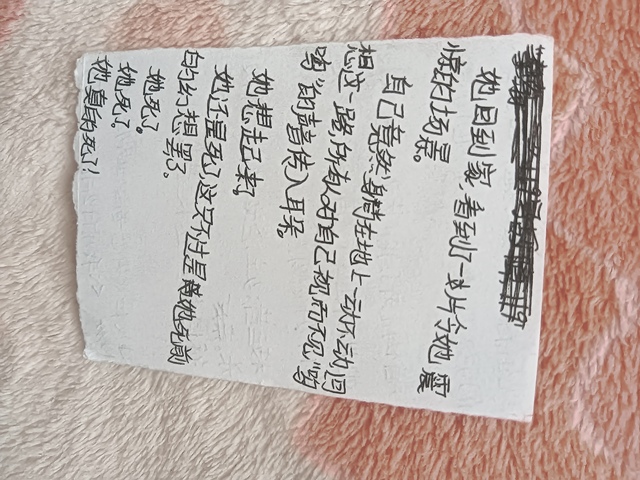 她回到家,看到了一片令她震
惊的场景。
自己竟然躺在地上一动不动回
想这一路,所有人对自己视而不见"
"的声音传入耳朵。
她想起来了
她还是死了这只不过是她死前
的幻想罢了。
她死了。
她死了
她真的死了!